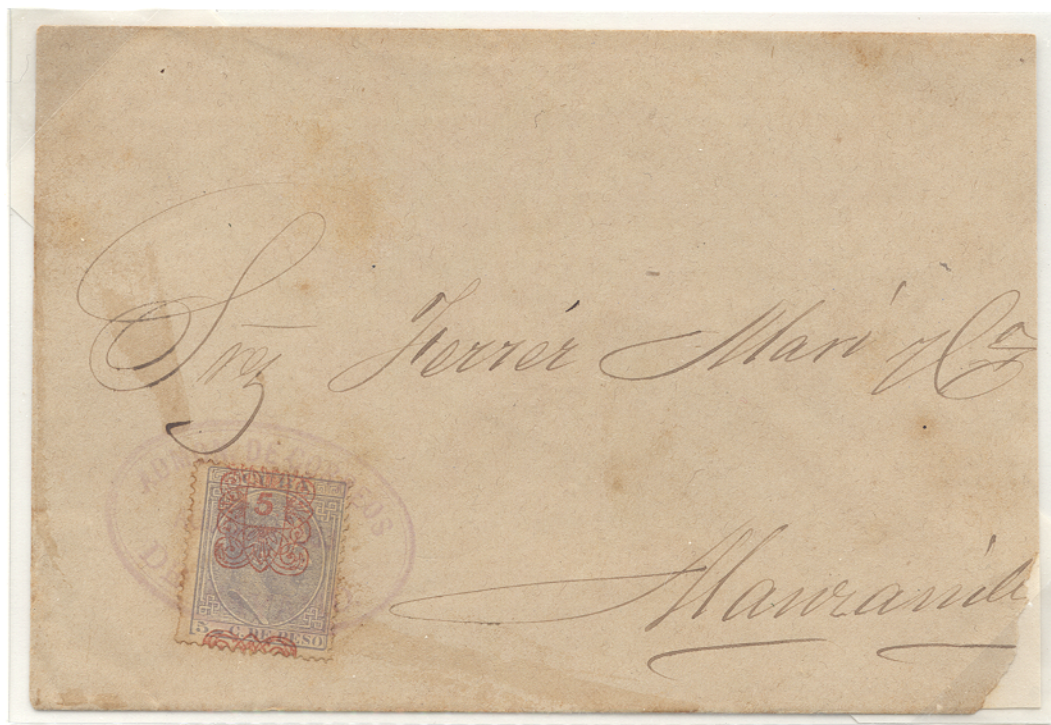 Sres Ferrér Marí y Ca
Manzanill
ADMON DE CORREOS
5
5 C. DE PESO